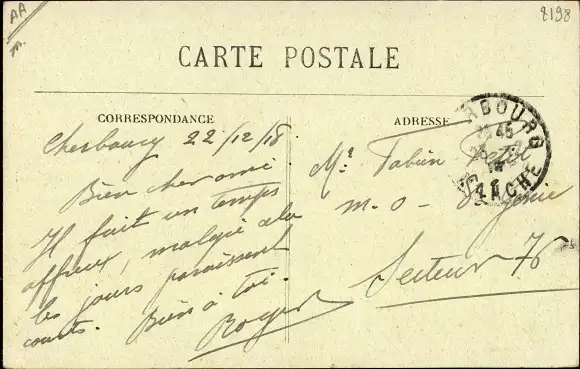 AA
8198
CARTE POSTALE
CORRESPONDANCE
Cherbourg 22/12/18
Bien cher ami
Il fait un temps
affreux, malgré cela
les jours paraissent
courts. Bien à toi.
Roger
ADRESSE
Mr. Fabien Petit
m. o -  Génie
Secteur 76
RBOURG
45
MANCHE